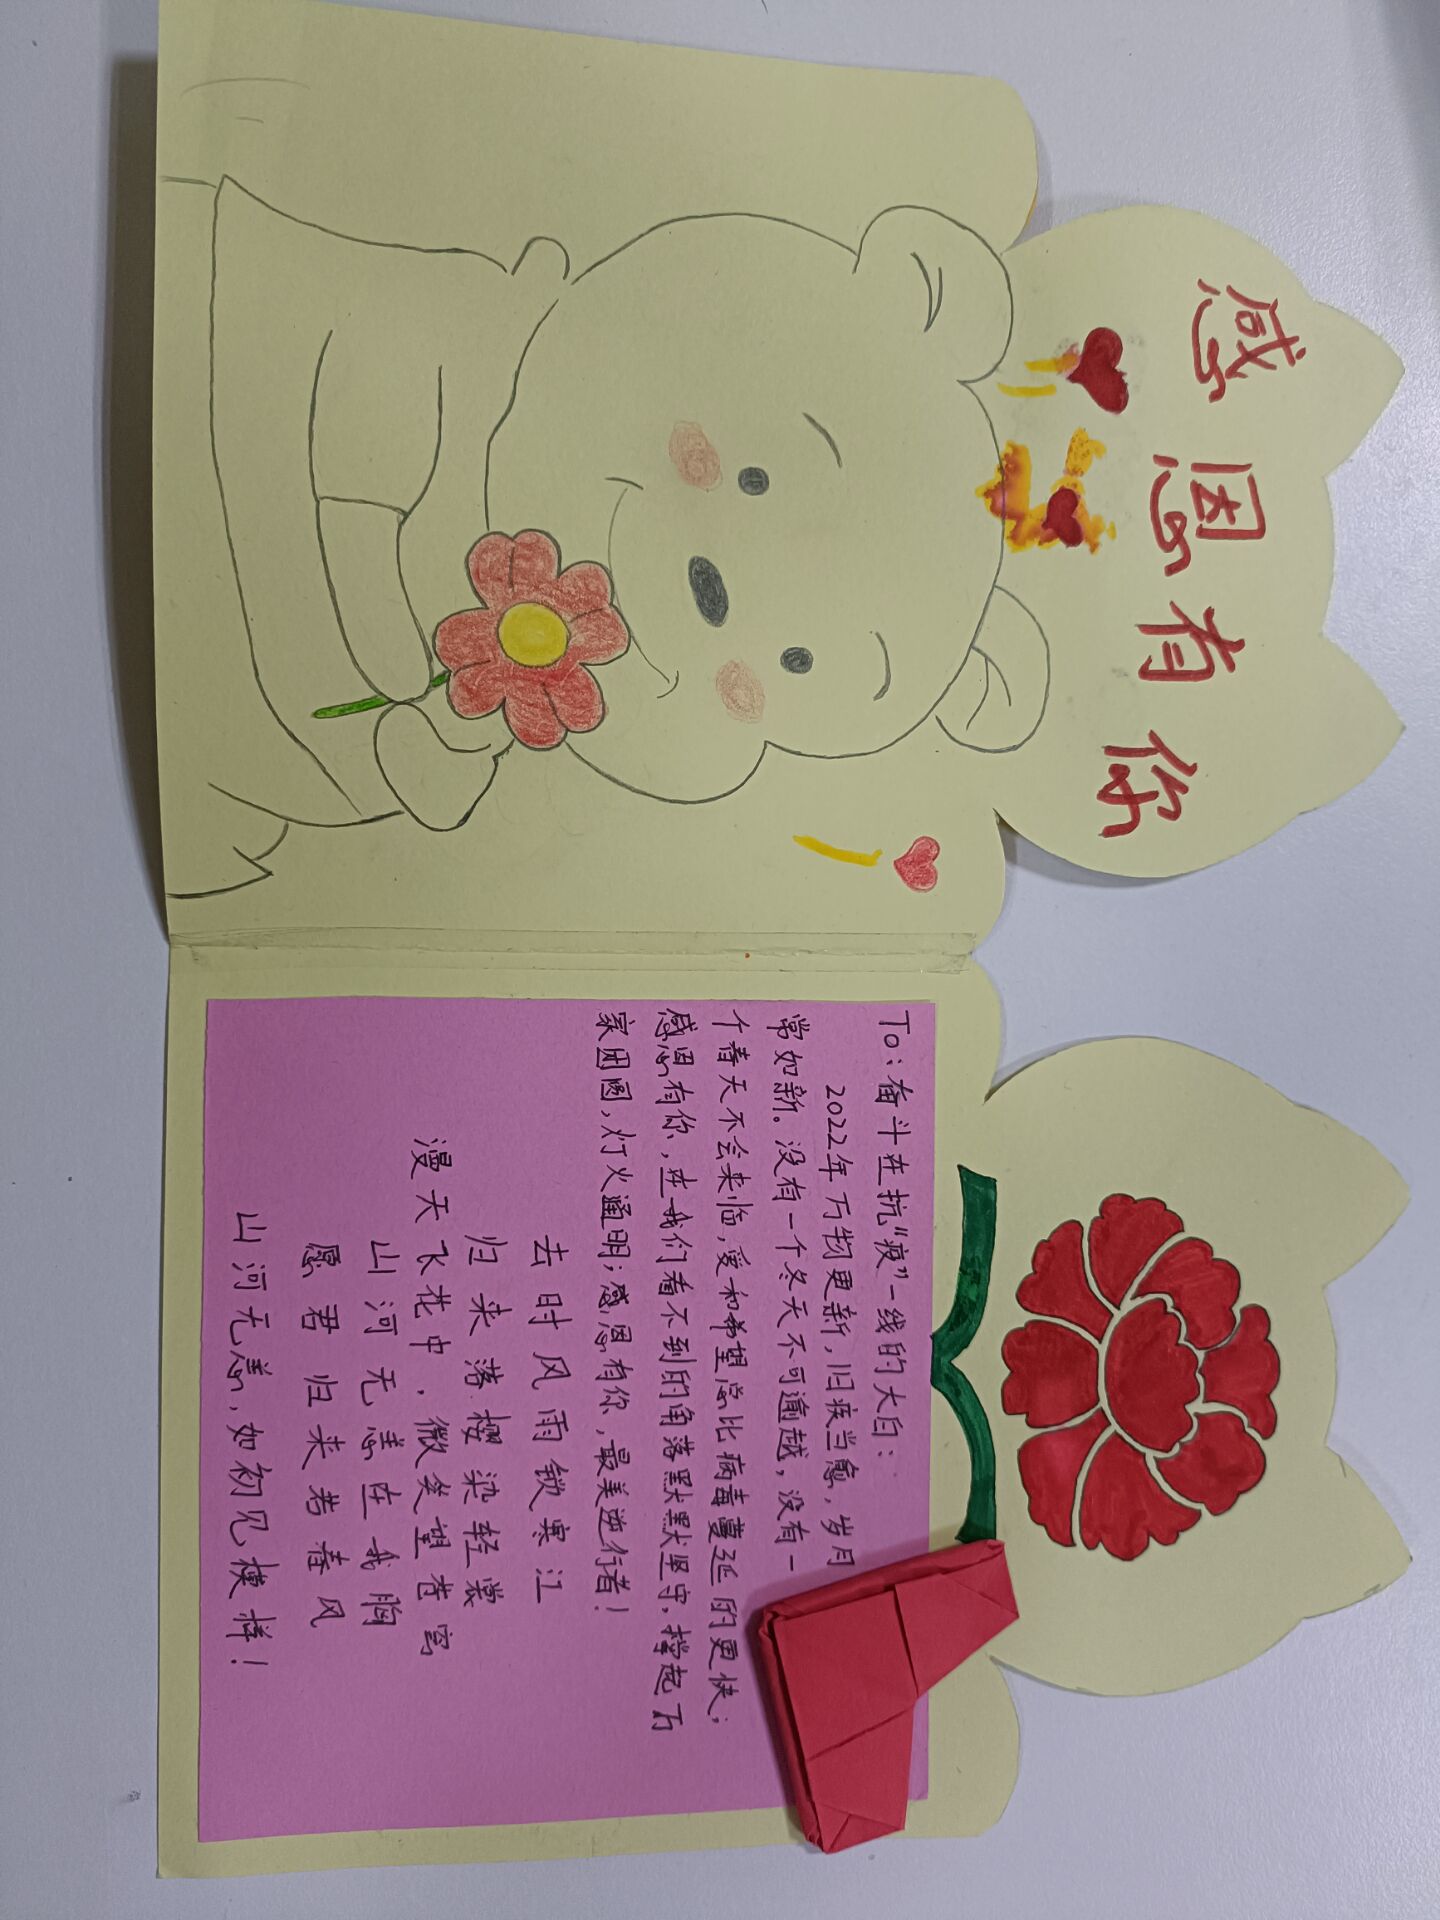 感恩有你
To:奋斗在抗“疫”一线的大白:
2022年万物更新,旧疾当愈,岁月
常如新。没有一个冬天不可逾越,没有一
个春天不会来临,爱和希望总比病毒蔓延的更快;
感恩有你,在我们看不到的角落默默坚守,撑起万
家团圆,灯火通明;感恩有你,最美逆行者!
去时风雨锁寒江
归来落樱染轻裳
漫天飞花中,微笑望苍穹
山河无恙在我胸
愿君归来若春风
山河无恙,如初见模样!